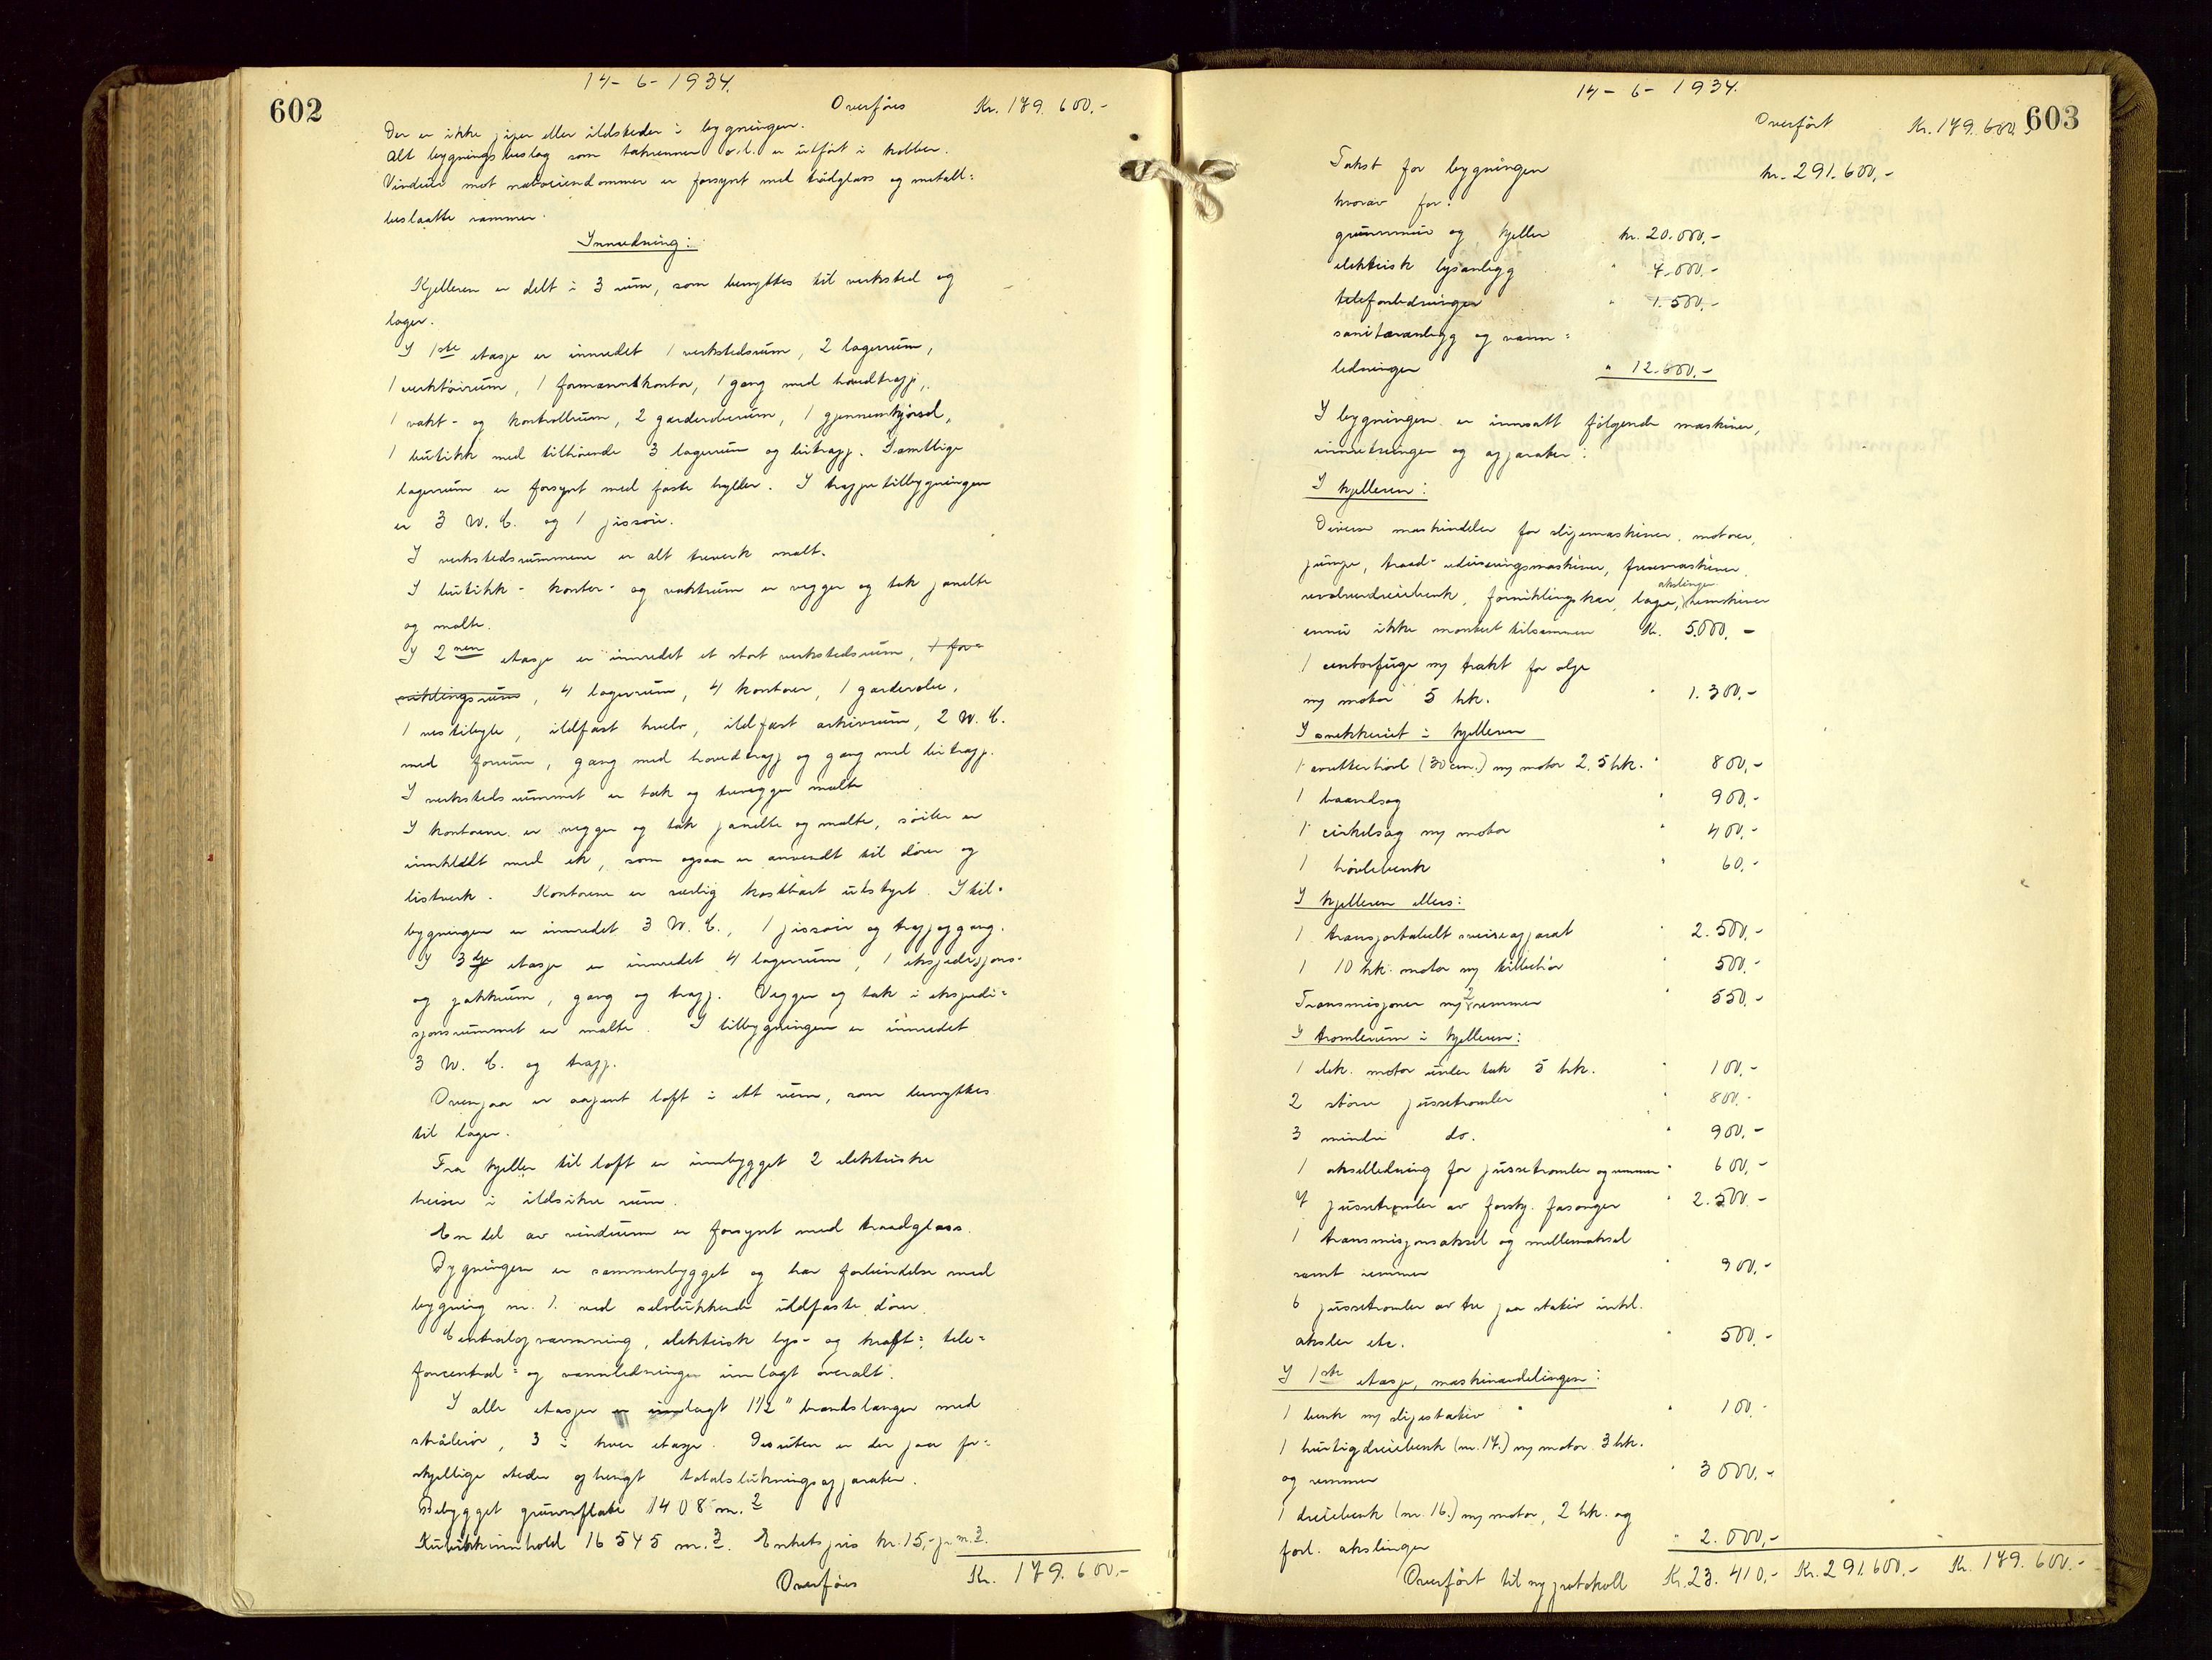 602
14-6-1934.
Overføres Kr. 179.600.-
Der er ikke piper eller ildsteder i bygningen.
Alt bygningsbeslag som takrenner o.l. er utført i kobber.
Vinduer mot naboeiendommer er forsynt med trådglass og metall-
beslaatte rammer.
Innredning:
Kjelleren er delt i 3 rum, som benyttes til verksted og
lager.
I 1ste etasje er innredet 1 verkstedsrum, 2 lagerrum,
1 verktøirum, 1 formannskontor, 1 gang med hovedtrapp,
1 vakt- og kontrollrum, 2 garderoberum, 1 gjennemkjørsel,
1 butikk med tilhørende 3 lagerrum og bitrapp. Samtlige
lagerrum er forsynt med faste hyller. I trappetilbygningen
er 3 W.C. og 1 pissoir.
I verkstedsrummene er alt treverk malt.
I butikk- kontor- og vaktrum er vegger og tak panelte
og malte.
I 2nen etasje er innredet et stort verkstedsrum, 1 for-
niklingsrum, 4 lagerrum, 4 kontorer, 1 garderobe,
1 vestibyle, ildfast hvelv, ildfast arkivrum, 2 W.C.
med forrum, gang med hovedtrapp og gang med bitrapp.
I verkstedsrummet er tak og trevegger malte
I kontorene er vegger og tak panelte og malte, søiler er
innkledt med ek, som ogsaa er anvendt til dører og
listverk. Kontorene er særlig kostbart utstyrt. I til-
bygningen er innredet 3 W.C., 1 pissoir og trappegang.
I 3dje etasje er innredet 4 lagerrum, 1 ekspedisjons-
og pakkrum, gang og trapp. Vegger og tak i ekspedi-
sjonsrummet er malte. I tilbygningen er innredet
3 W.C. og trapp.
Ovenpaa er aapent loft i ett rum, som benyttes
til lager.
Fra kjeller til loft er innbygget 2 elektriske
heiser i ildsikre rum.
En del av vinduene er forsynt med traadglass.
Bygningen er sammenbygget og har forbindelse med
bygning nr. 1. ved selvlukkende ildfaste dører.
Centralopvarmning, elektrisk lys- og kraft-, tele-
foncentral- og vannledninger innlagt overalt.
I alle etasjer er innlagt 1 1/2" brandslanger med
strålerør, 3 i hver etasje. Desuten er der paa for-
skjellige steder ophengt totalslukningsapparater.
Bebygget grunnflate 1408 m.2
Kubikkinnhold 16545 m.3. Enhetspris kr. 15,- pr. m.3.
Overføres Kr. 179.600.-
603
14-6-1934.
Overført Kr. 179.600.-
Takst for bygningen kr. 291.600,-
hvorav for:
grunnmur og kjeller kr. 20.000,-
elektrisk lysanlegg " 7.000.-
telefonledninger " 1.500,-
sanitæranlegg og vann-
ledninger " 12.600.-
I bygningen er innsatt følgende maskiner,
innretninger og apparater:
I kjelleren:
Diverse maskindeler for slipemaskiner, motorer,
pumpe, traad- maskiner, fresemaskiner,
revolverdreiebenk, forniklingskar, lager, akslinger, remskiver
ennu ikke montert tilsammen Kr. 5.000.-
1 centrifuge m/ trakt for olje
m/ motor 5 hk. " 1.300.-
I snekkeriet i kjelleren
1 avretterhøvl (30 cm.) m/ motor 2.5 hk. " 800,-
1 baandsag " 900.-
1 cirkelsag m/ motor " 400.-
1 høvlebenk " 60.-
I kjelleren ellers:
1 transportabelt sveiseapparat " 2.500,-
1 10 hk. motor m/ tilbehør " 500.-
Transmisjoner m/ 2 remmer " 550.-
I tromlerum i kjelleren:
1 elek. motor under tak 5 hk. " 100.-
2 større pussetromler " 800.-
3 mindre do. " 900.-
1 akselledning for pussetromler og remmer " 600,-
7 pussetromler av forskj. fasonger " 2.500.-
1 transmisjonsaksel og mellemaksel
samt remmer " 900.-
6 pussetromler av tre paa stativ inkl.
aksler etc. " 500.-
I 1ste etasje, maskinavdelingen:
1 benk m/ slipestativ " 100.-
1 hurtigdreiebenk (nr. 17.) m/ motor 3 hk.
og remmer " 3000.-
1 dreiebenk (nr. 16.) m/ motor, 2 hk. og
forl. akslinger " 2.000,-
Overført til ny protokoll Kr. 23.410.- Kr. 291.600.- Kr. 179.600.-